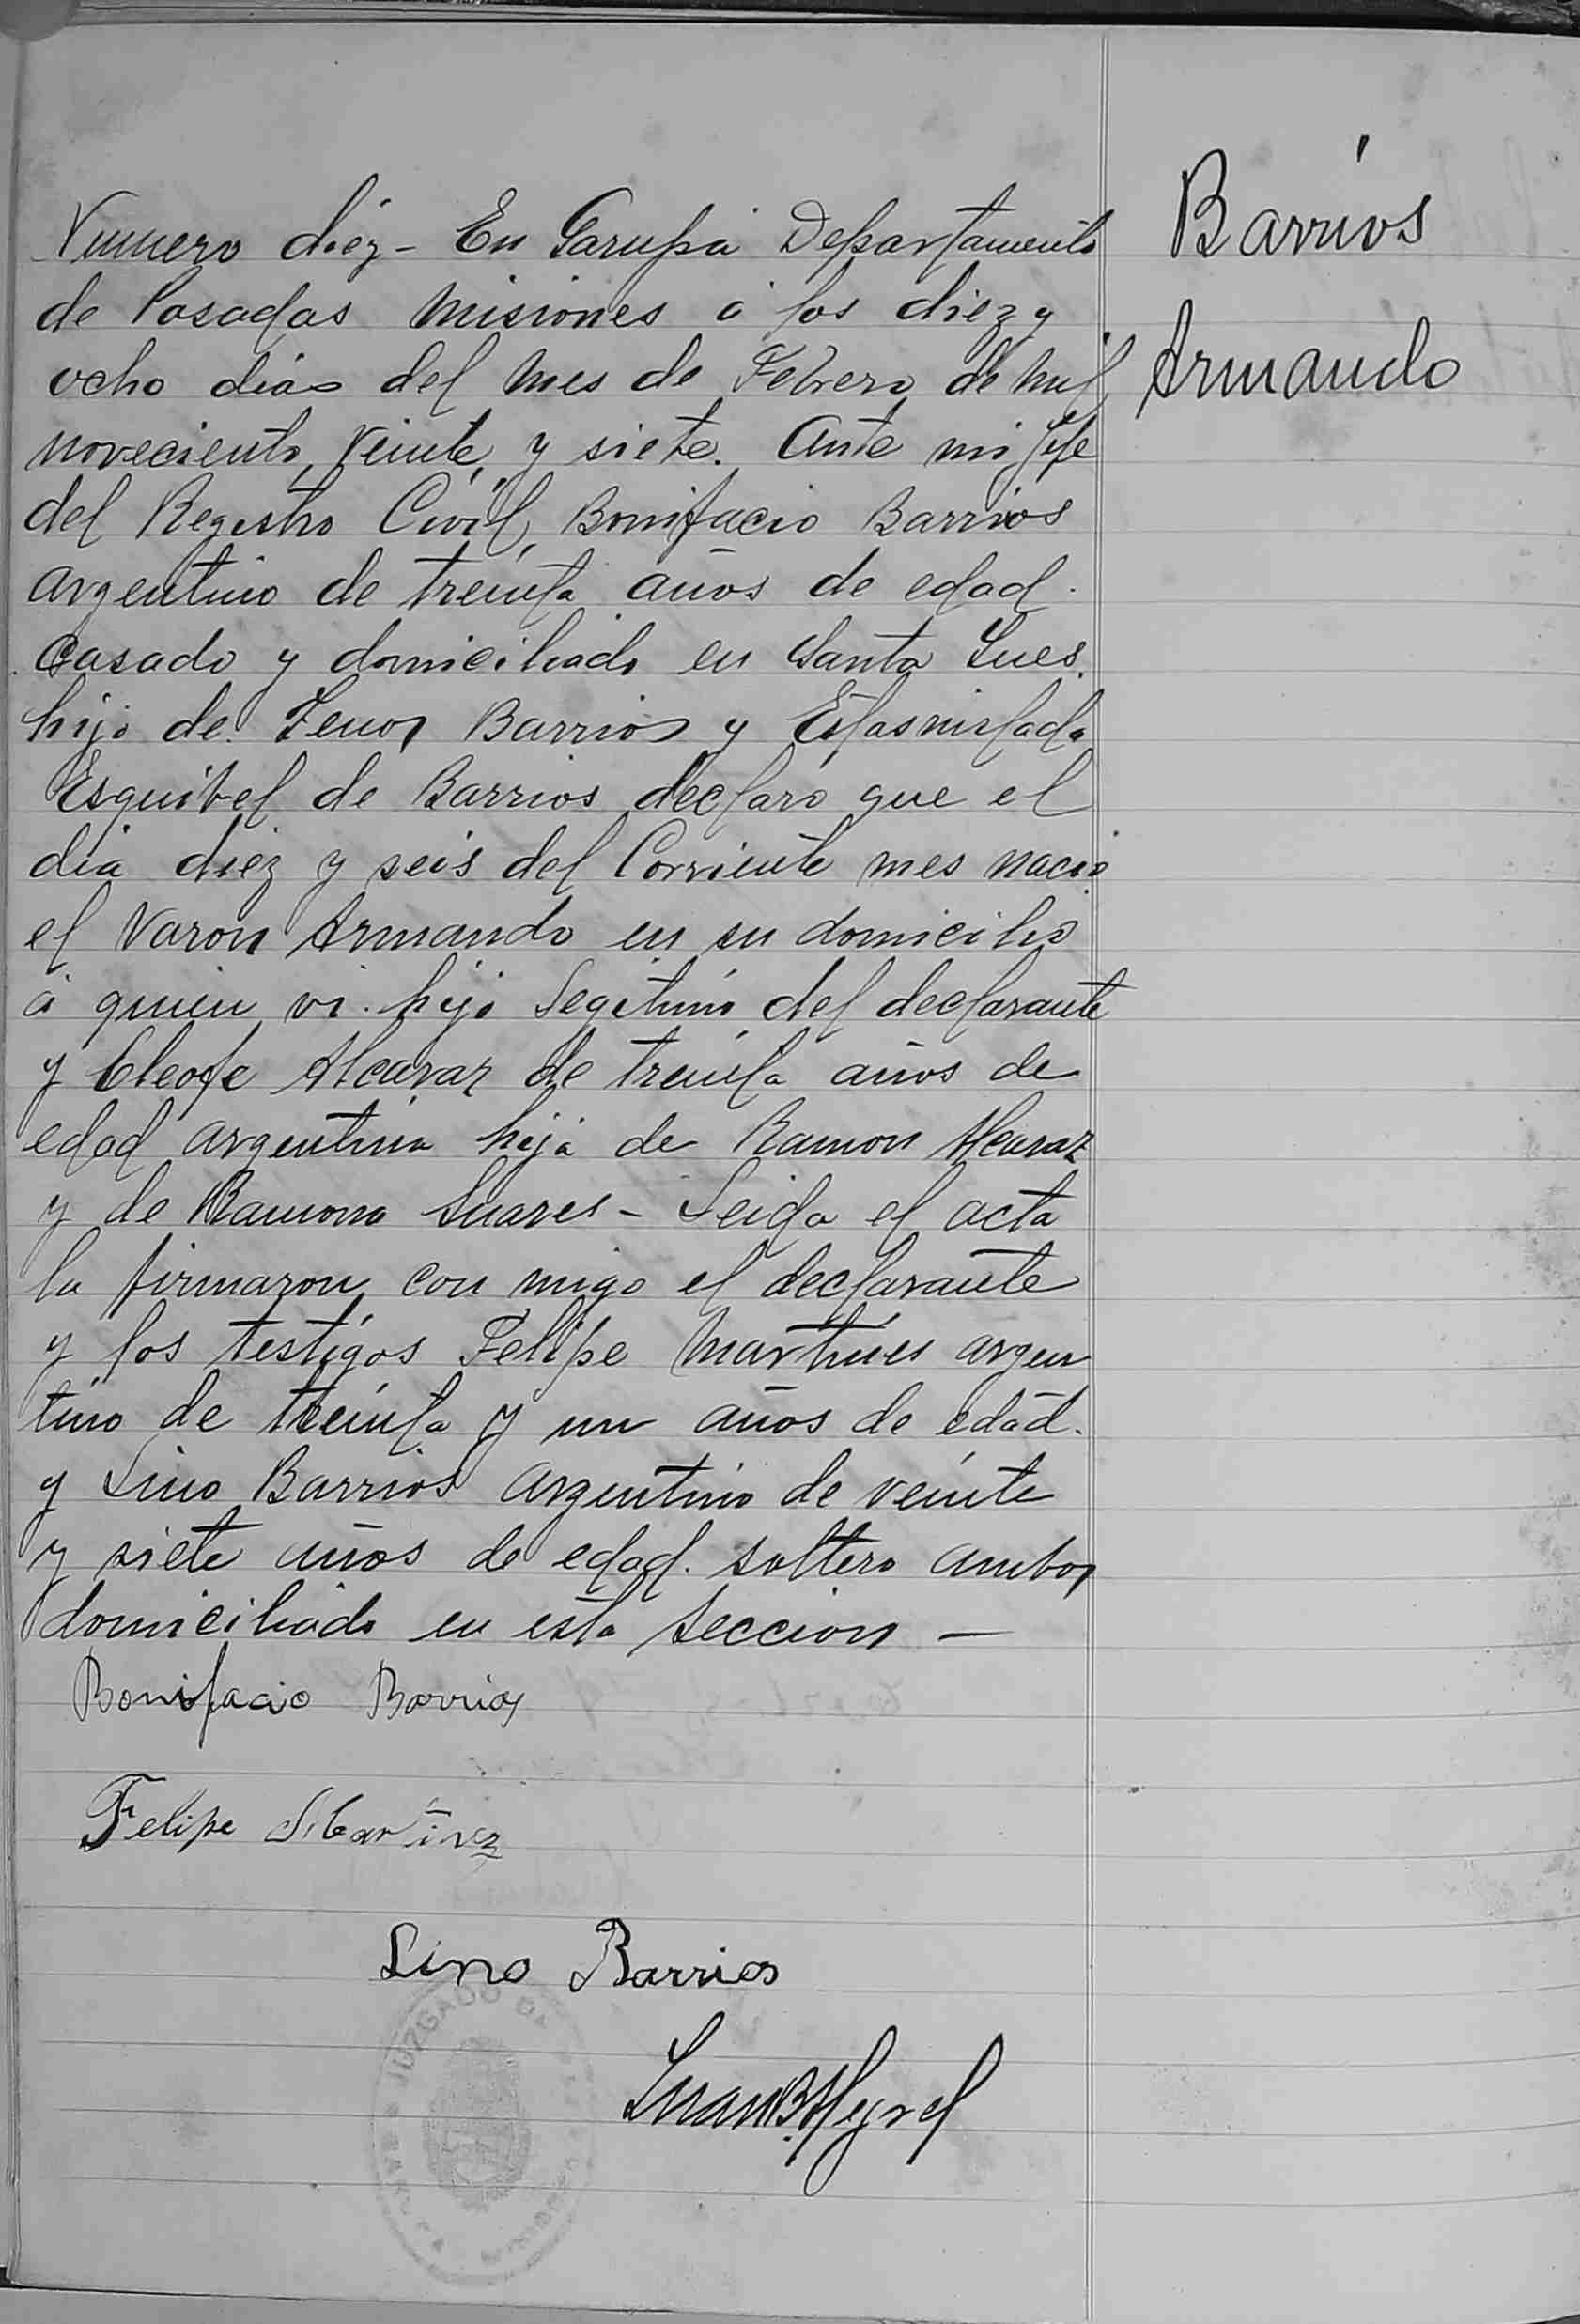 Barrios
Armando
Numero diez - En Garupá Departamento
de Posadas Misiones á los diez y
ocho dias del mes de Febrero de mil
noveciento, veinte, y siete. Ante mi Jefe
del Registro Civil, Bonifacio Barrios
argentino de treinta años de edad.
Casado y domiciliado en Santa Ines.
hijo de Barrios y
Esquibel de Barrios declaró que el
dia diez y seis del Corriente mes nació
el Varon Armando en su domicilio
á quien vi. hijo legitimo del declarante
y Cleofe Alcaraz de treinta años de
edad argentina hija de Ramon Alcaraz
y de Ramona Suares - Leida el acta
la firmaron con migo el declarante
y los testigos Felipe Martines argen
tino de treinta y un años de edad.
y Lino Barrios argentino de veinte
y siete años de edad. soltero ambos
domiciliado en esta seccion —
Bonifacio Barrios
Felipe Martinez
Lino Barrios
Juan B
JUZGADO DE